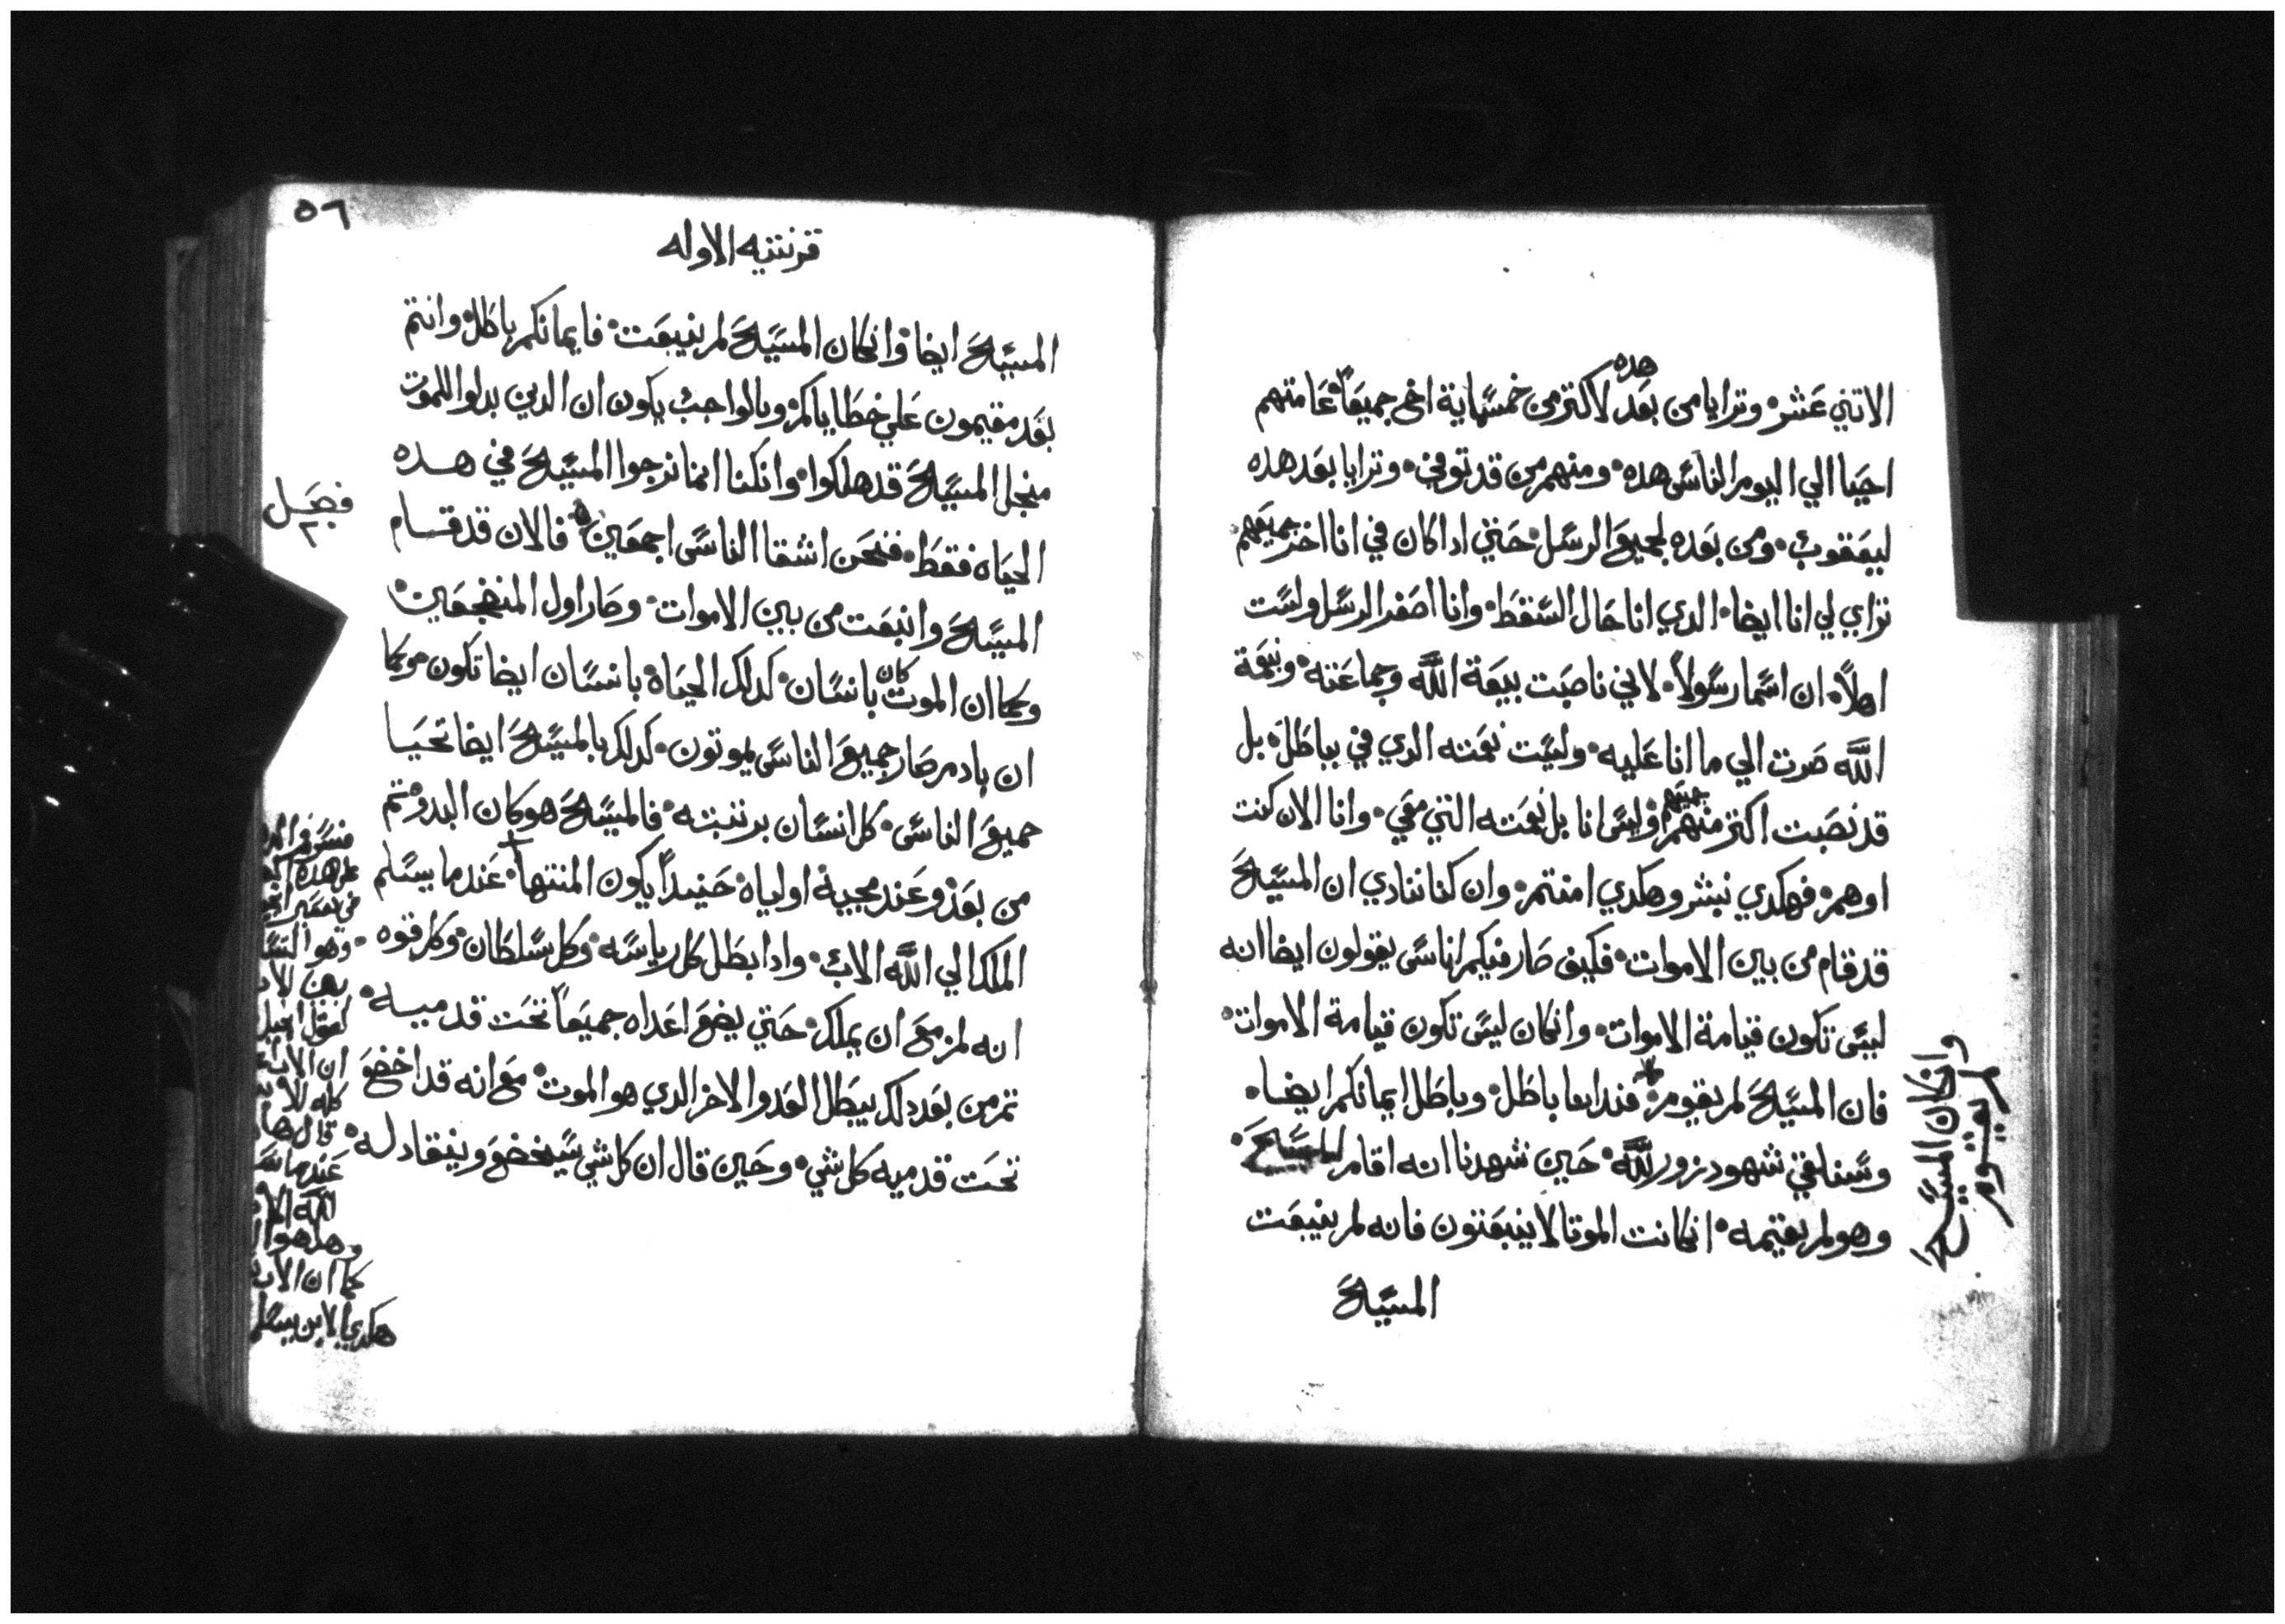 الاتني عشر وترايا من بعد هده لاكتر من خمسماية اخ جميعاً عامتهم
احيا الي اليوم الناس هده ومنهم من قد توفي وترايا بعد هده
ليعقوب ومن بعده لجميع الرسل حتي ادا كان في انا اخر جميعهم
تراي لي انا ايضا الدي انا حال السقط وانا اصغر الرسل ولست
اهلاً ان اسما رسولاً لاني ناصبت بيعة الله وجماعته وبنعمة
الله صرت الي ما انا عليه وليست نعمته الدي في بباطلة بل
قد نصبت اكتر منهم جميعهم وليس انا بل نعمته التي معي وانا الان كنت
اوهم فهكدي نبشر وهكدي امنتم وان كنا ننادي ان المسيح
قد قام من بين الاموات فكيف صار فيكم اناس يقولون ايضا انه
ليس تكون قيامة الاموات وانكان ليس تكون قيامة الاموات
فان المسيح لم يقوم فنداىىا باطل وباطل ايمانكم ايضا
وسنلقي شهود زور لله حين شهدنا انه اقام المسيح
وهو لم يقيمه انكانت الموتا لا ينبعتون فانه لم ينبعت
المسيح
وانكان المسيح
لم يقوم
٥٦
قرنتيه الاوله
المسيح ايضا وانكان المسيح لم ينبعت فايمانكم باطل وانتم
بعد مقيمون علي خطاياكم وبالواجب يكون ان الدين بدلوا للموت
منجل المسيح قد هلكوا وانكنا انما نرجوا المسيح في هده
الحياه فقط فنحن اشقا الناس اجمعين فالان قد قام
فصل
المسيح وانبعت من بين الاموات وصار اول المنضجعين
وكما ان الموت كان بانسان كدلك الحياة بانسان ايضا تكون وكما
ان بادم صار جميع الناس يموتون كدلك بالمسيح ايضا تحيا
جميع الناس كل انسان برتبته فالمسيح هو كان البدو تم
من بعد وعند مجيه اولياه حنيداً يكون المنتها عندما يسلم
الملك الي الله الاب وادا بطل كل رياسه وكل سلطان وكل قوه
انه لمزمع ان يملك حتي يضع اعداه جميعاً تحت قدميه
تم من بعد دلك يبطل العدو الاخر الدي هو الموت مع انه قد اخضع
تحت قدميه كل شي وحين قال ان كل شي سيخضع وينقاد له
علي هده
وهو
ان الاب
كله للاب
قال
عندما
الله
وهدا هو
كما ان الاب
هكدي الابن يسلم